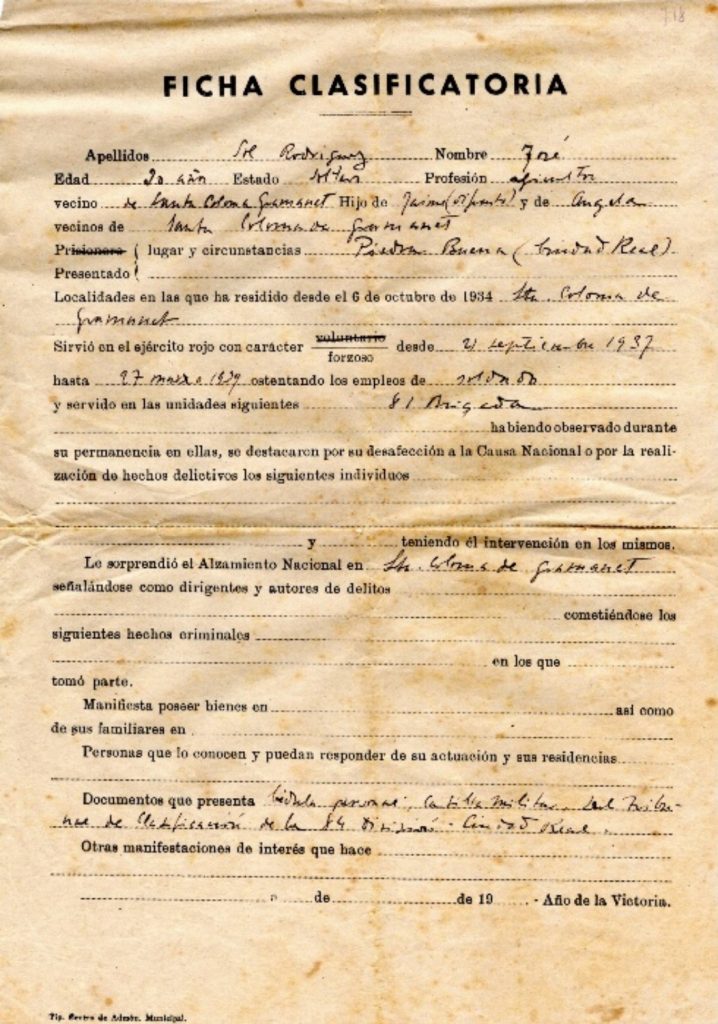 718
FICHA CLASIFICATORIA
Apellidos Sol Rodriguez Nombre José
Edad 20 años Estado soltero Profesión agricultor
vecino de Santa Coloma Gramanet Hijo de Jaime (difunto) y de Angela
vecinos de Santa Coloma de Gramanet
Prisionero lugar y circunstancias Piedra Buena (Ciudad Real)
Presentado
Localidades en las que ha residido desde el 6 de octubre de 1934 Sta Coloma de
Gramanet
Sirvió en el ejército rojo con carácter voluntario
forzoso desde 21 septiembre 1937
hasta 27 marzo 1939 ostentando los empleos de soldado
y servido en las unidades siguientes 81 Brigada
habiendo observado durante
su permanencia en ellas, se destacaron por su desafección a la Causa Nacional o por la reali-
zación de hechos delictivos los siguientes individuos
y teniendo él intervención en los mismos.
Le sorprendió el Alzamiento Nacional en Sta. Coloma de Gramanet
señalándose como dirigentes y autores de delitos
cometiéndose los
siguientes hechos criminales
en los que
tomó parte.
Manifiesta poseer bienes en así como
de sus familiares en
Personas que lo conocen y puedan responder de su actuación y sus residencias
Documentos que presenta Cédula personal, Cartilla militar, del Tribu-
nal de Clasificación de la 84 División - Ciudad Real.
Otras manifestaciones de interés que hace
a de de 19 . - Año de la Victoria.
Tip. Centro de Admón. Municipal.